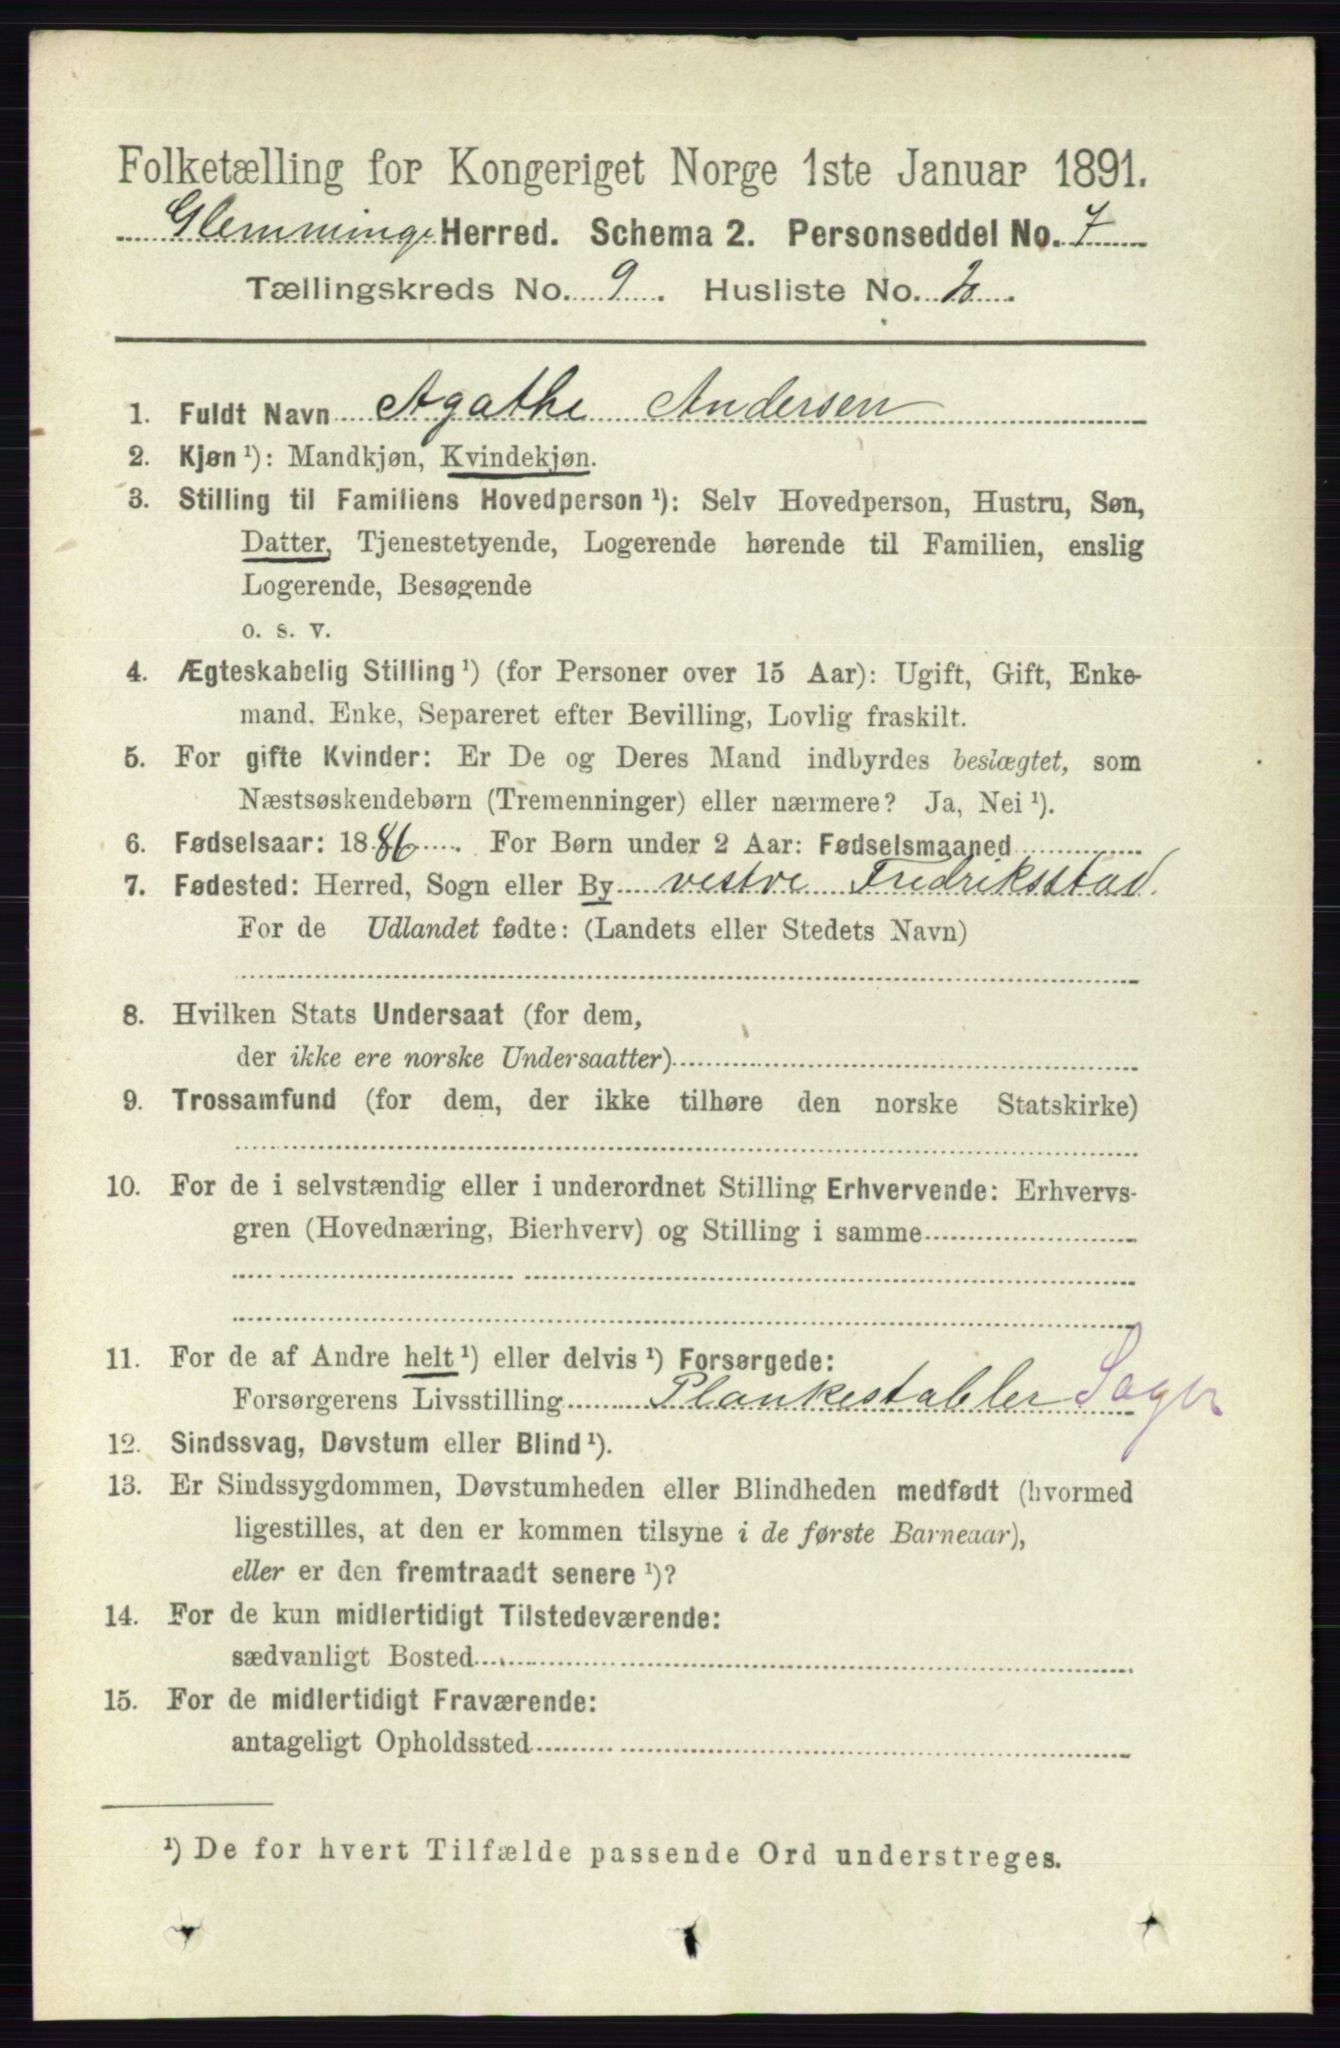 Folketælling for Kongeriget Norge 1ste Januar 1891.
Glemminge Herred. Schema 2. Personseddel No. 7
Tællingskreds No. 9. Husliste No. 20.
1. Fuldt Navn Agathe Andersen
2. Kjøn ¹): Mandkjøn, Kvindekjøn.
3. Stilling til Familiens Hovedperson ¹): Selv Hovedperson, Hustru, Søn,
Datter, Tjenestetyende, Logerende hørende til Familien, enslig
Logerende, Besøgende
o. s. v.
4. Ægteskabelig Stilling ¹) (for Personer over 15 Aar): Ugift, Gift, Enke-
mand. Enke, Separeret efter Bevilling, Lovlig fraskilt.
5. For gifte Kvinder: Er De og Deres Mand indbyrdes beslægtet, som
Næstsøskendebørn (Tremenninger) eller nærmere? Ja, Nei ¹).
6. Fødselsaar: 1886. For Børn under 2 Aar: Fødselsmaaned
7. Fødested: Herred, Sogn eller By vestre Fredriksstad.
For de Udlandet fødte: (Landets eller Stedets Navn)
8. Hvilken Stats Undersaat (for dem,
der ikke ere norske Undersaatter)
9. Trossamfund (for dem, der ikke tilhøre den norske Statskirke)
10. For de i selvstændig eller i underordnet Stilling Erhvervende: Erhvervs-
gren (Hovednæring, Bierhverv) og Stilling i samme
11. For de af Andre helt ¹) eller delvis ¹) Forsørgede:
Forsørgerens Livsstilling Plankestabler
12. Sindssvag, Døvstum eller Blind ¹).
13. Er Sindssygdommen, Døvstumheden eller Blindheden medfødt (hvormed
ligestilles, at den er kommen tilsyne i de første Barneaar),
eller er den fremtraadt senere ¹)?
14. For de kun midlertidigt Tilstedeværende:
sædvanligt Bosted
15. For de midlertidigt Fraværende:
antageligt Opholdssted
¹) De for hvert Tilfælde passende Ord understreges.